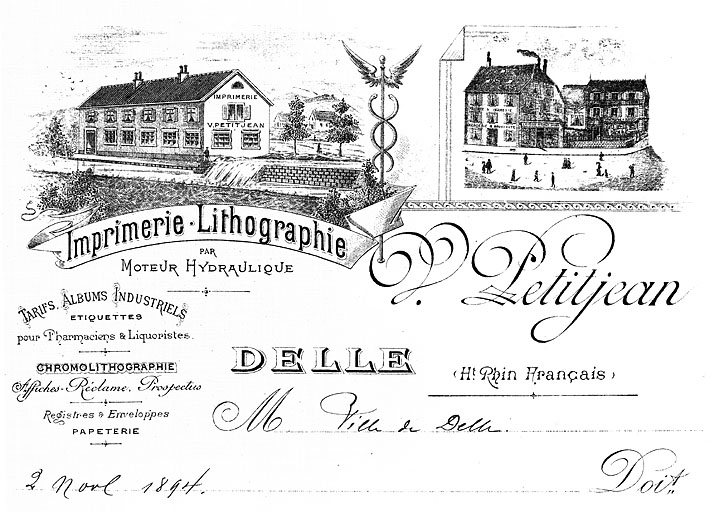 IMPRIMERIE
V. PETITJEAN
IMPRIMERIE
Imprimerie - Lithographie
PAR
MOTEUR HYDRAULIQUE
V. Petitjean
TARIFS, ALBUMS INDUSTRIELS
ETIQUETTES
pour Pharmaciens & Liquoristes.
CHROMOLITHOGRAPHIE
Affiches-Réclame, Prospectus
Registres & Enveloppes
PAPETERIE
DELLE
(Ht Rhin Français)
M Ville de Delle.
2 Novb 1894.
Doit